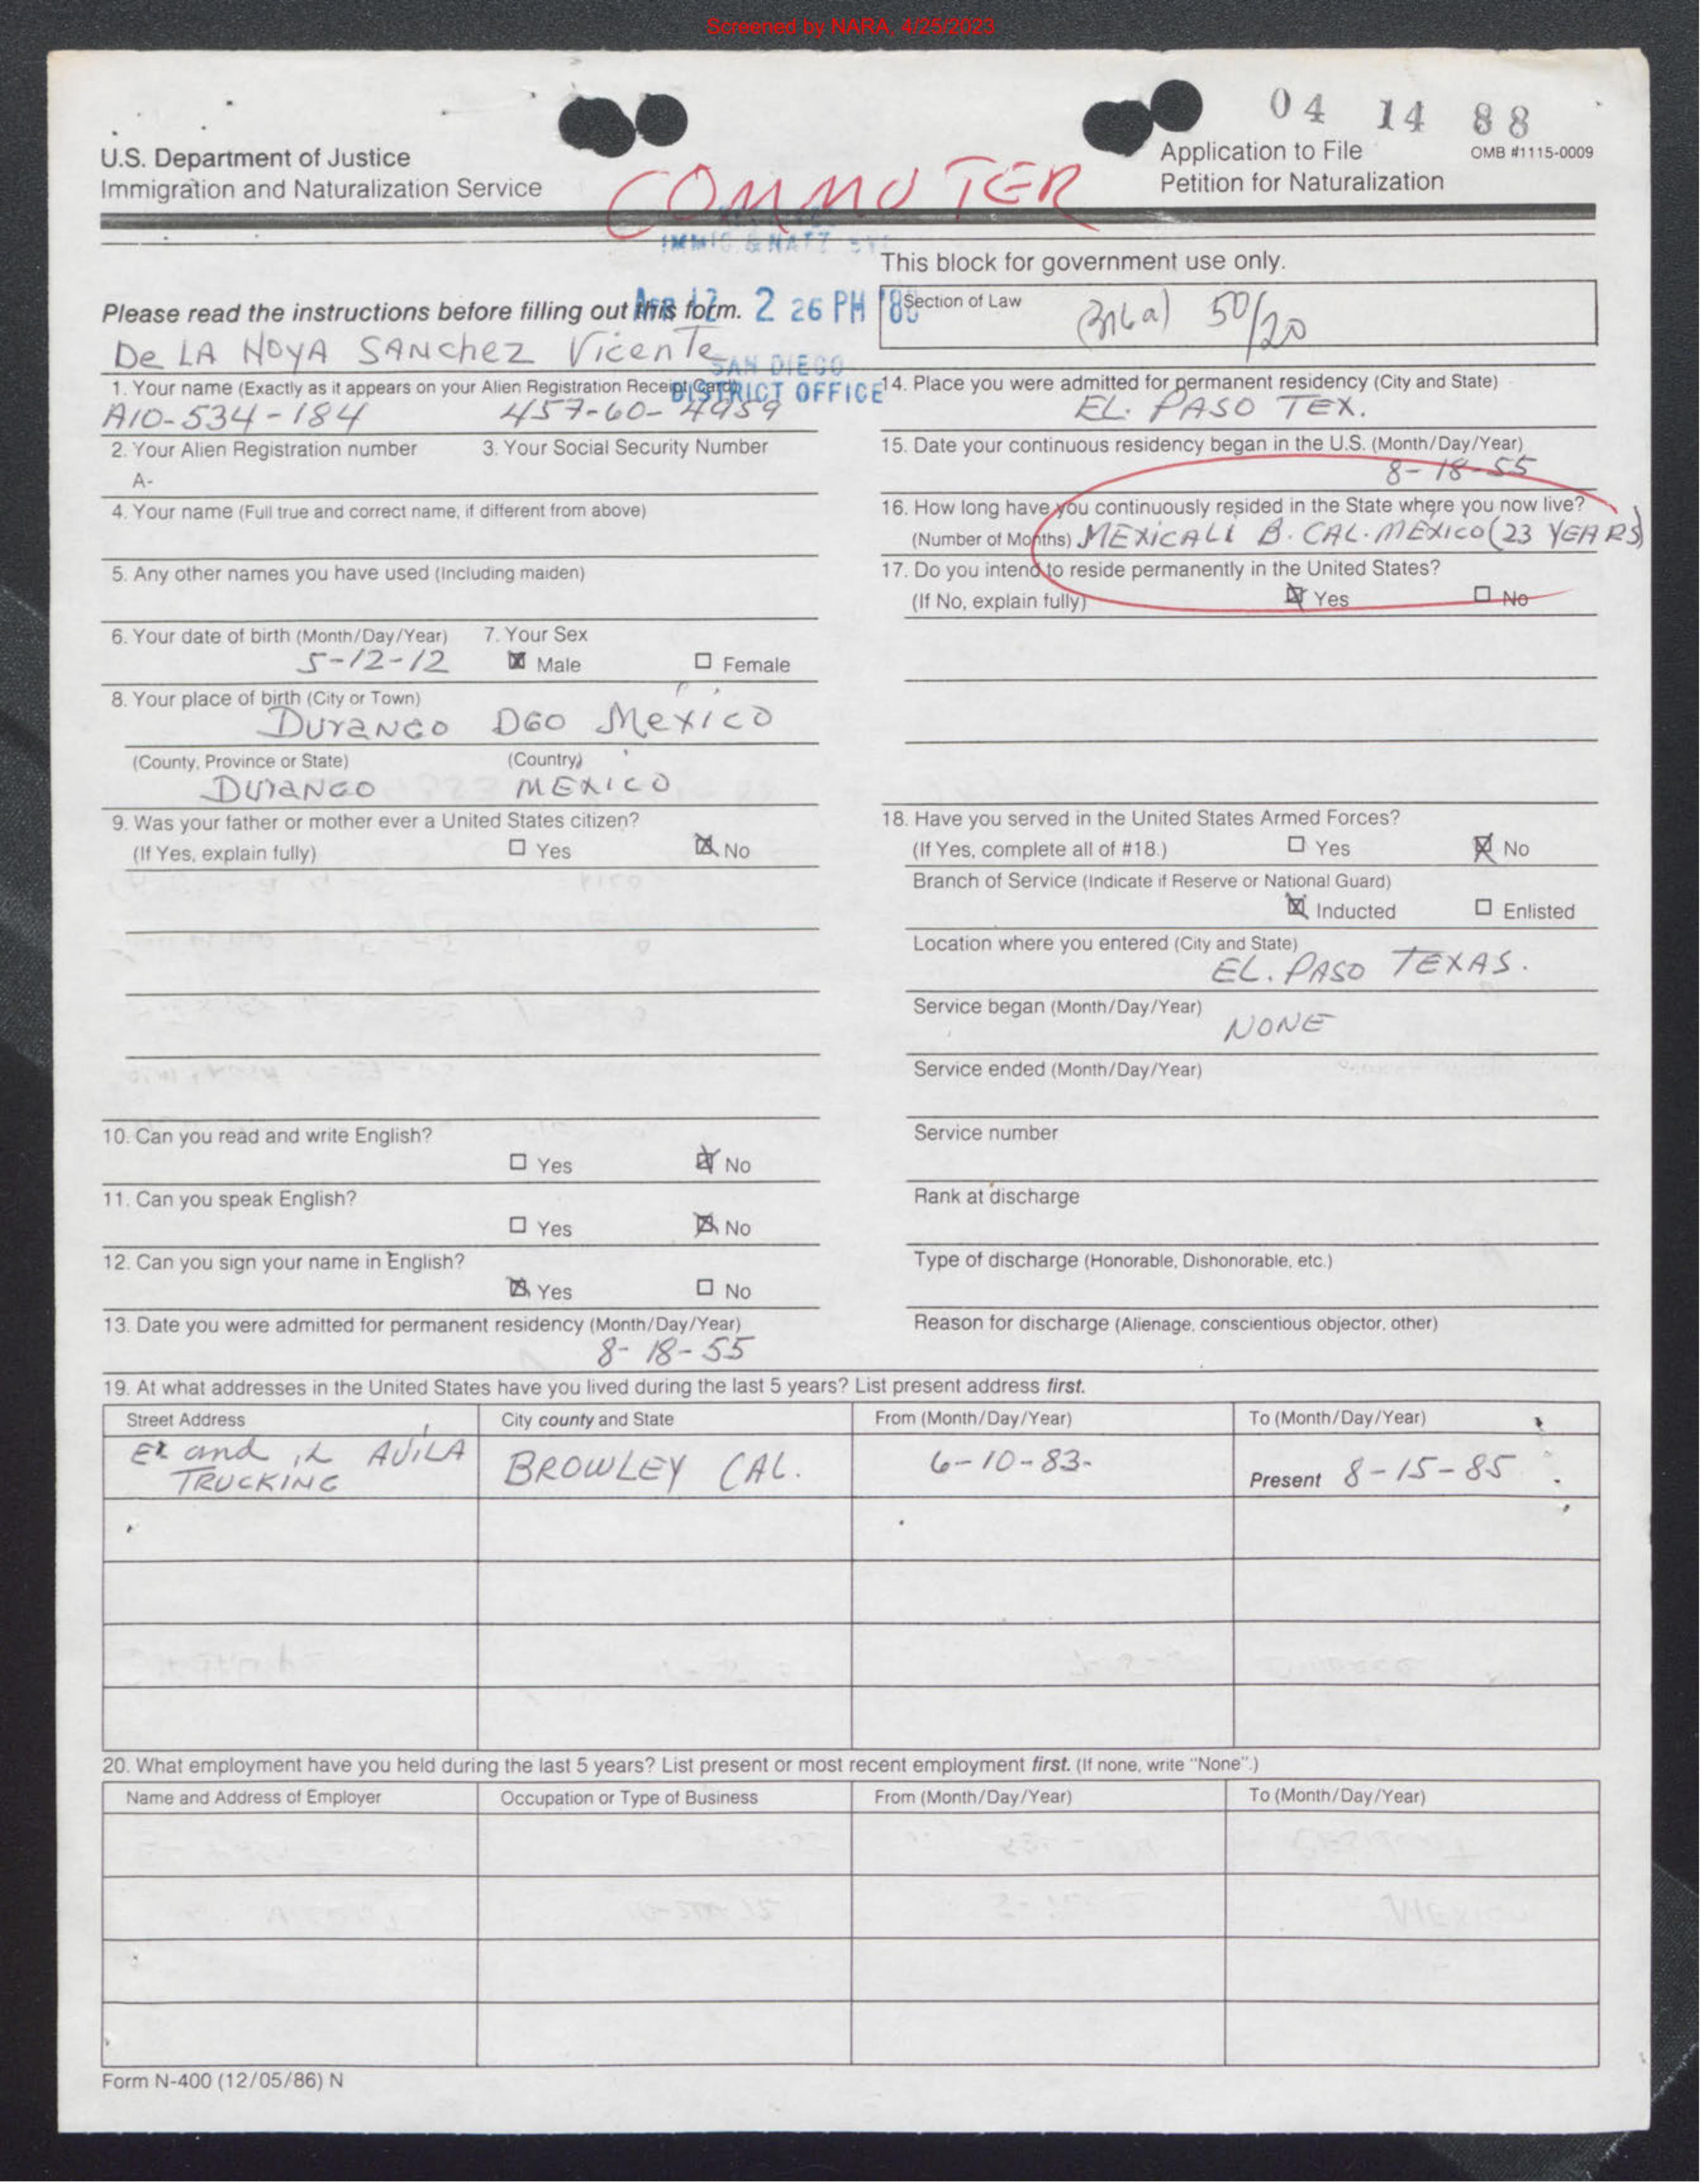 Screened by NARA, 4/25/2023
04 14 88
U.S. Department of Justice
Immigration and Naturalization Service
COMMUTER
Application to File
Petition for Naturalization
OMB #1115-0009
IMMIG & NATZ
Please read the instructions before filling out this form.
2 26 PM '88
SAN DIEGO
DISTRICT OFFICE
This block for government use only.
Section of Law
(316a) 50/20
De LA HOYA SANchez Vicente
1. Your name (Exactly as it appears on your Alien Registration Receipt Card)
A10-534-184 457-60-4959
2. Your Alien Registration number 3. Your Social Security Number
A-
4. Your name (Full true and correct name, if different from above)
5. Any other names you have used (Including maiden)
6. Your date of birth (Month/Day/Year) 7. Your Sex
5-12-12 ☒ Male ☐ Female
8. Your place of birth (City or Town)
DuraNGO DGO Mexico
(County, Province or State) (Country)
DuraNGO MEXICO
9. Was your father or mother ever a United States citizen?
(If Yes, explain fully) ☐ Yes ☒ No
10. Can you read and write English?
☐ Yes ☒ No
11. Can you speak English?
☐ Yes ☒ No
12. Can you sign your name in English?
☒ Yes ☐ No
13. Date you were admitted for permanent residency (Month/Day/Year)
8-18-55
14. Place you were admitted for permanent residency (City and State)
EL. PASO TEX.
15. Date your continuous residency began in the U.S. (Month/Day/Year)
8-18-55
16. How long have you continuously resided in the State where you now live?
(Number of Months) MEXICALI B. CAL. MEXICO (23 YEARS)
17. Do you intend to reside permanently in the United States?
(If No, explain fully) ☒ Yes ☐ No
18. Have you served in the United States Armed Forces?
(If Yes, complete all of #18.) ☐ Yes ☒ No
Branch of Service (Indicate if Reserve or National Guard)
☒ Inducted ☐ Enlisted
Location where you entered (City and State)
EL. PASO TEXAS.
Service began (Month/Day/Year)
NONE
Service ended (Month/Day/Year)
Service number
Rank at discharge
Type of discharge (Honorable, Dishonorable, etc.)
Reason for discharge (Alienage, conscientious objector, other)
19. At what addresses in the United States have you lived during the last 5 years? List present address first.
Street Address City county and State From (Month/Day/Year) To (Month/Day/Year)
and AVILA
TRUCKING BROWLEY CAL. 6-10-83- Present 8-15-85
20. What employment have you held during the last 5 years? List present or most recent employment first. (If none, write "None".)
Name and Address of Employer Occupation or Type of Business From (Month/Day/Year) To (Month/Day/Year)
Form N-400 (12/05/86) N